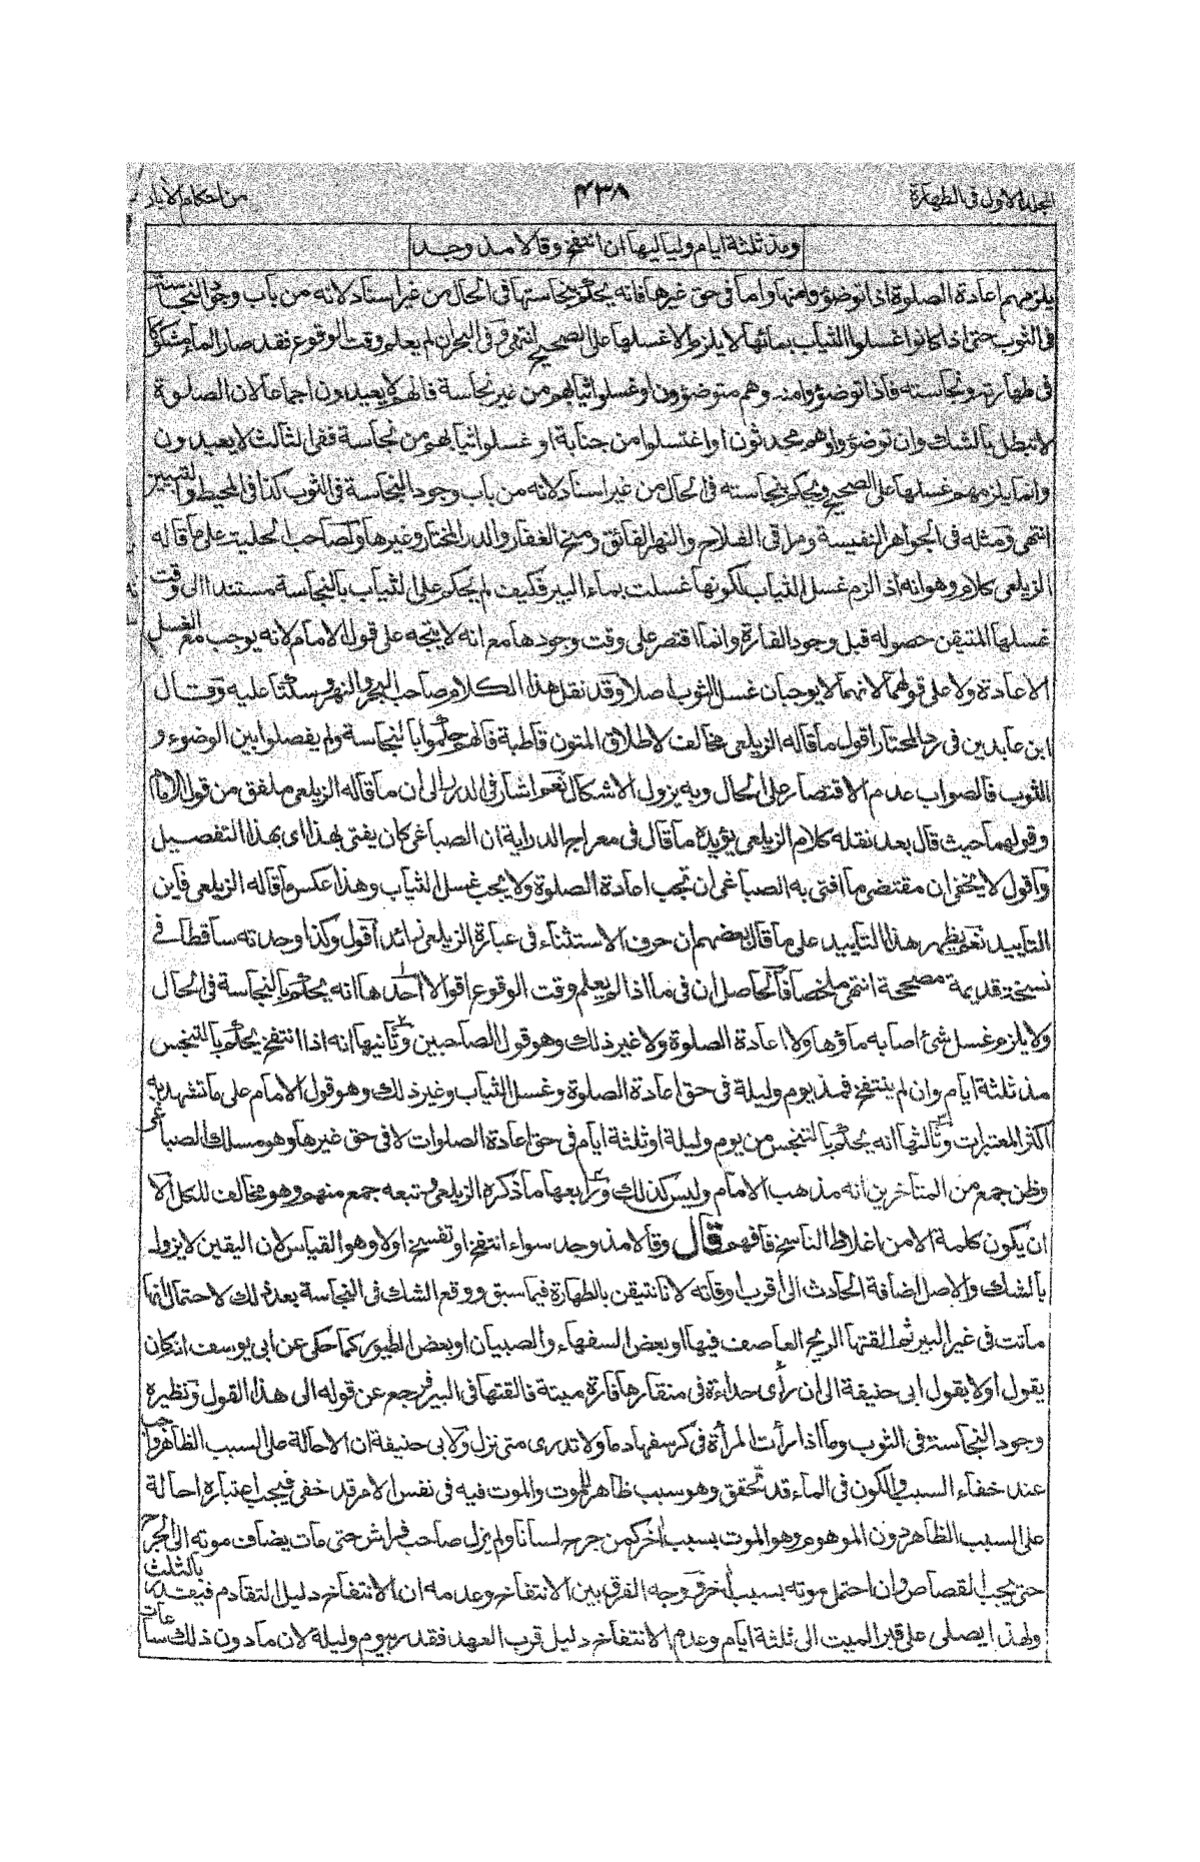 المجلد الاول فى الطهارة
٤٣٨
من احكام الابار
ومذ ثلثة ايام ولياليها ان انتفخ وقالا مذ وجد
يلزمهم اعادة الصلوة اذا توضؤوا منها واما فى حق غيرها فانه يحكم بنجاستها فى الحال من غير اسناد لانه من باب وجود النجاسة
فى الثوب حتى اذا كانوا غسلوا الثياب بمائها لا يلزم الا غسلها على الصحيح انتهى وفى البحر ان لم يعلم وقت الوقوع فقد صار الماء مشكوكا
فى طهارته ونجاسته فاذا توضؤوا منه وهم متوضؤون او غسلوا ثيابهم من غير نجاسة فانهم لا يعيدون اجماعا لان الصلوة
لا تبطل بالشك وان توضؤوا وهم محدثون او اغتسلوا من جنابة او غسلوا ثيابهم من نجاسة ففى الثالث لا يعيدون
وانما يلزمهم غسلها على الصحيح ويحكم بنجاسته فى الحال من غير اسناد لانه من باب وجود النجاسة فى الثوب كذا فى المحيط والتبيين
انتهى ومثله فى الجواهر النفيسة ومراقى الفلاح والنهر الفائق ومنح الغفار والدر المختار وغيرها ولصاحب الحلية على ما قاله
الزيلعى كلام وهو انه اذا لزم غسل الثياب لكونها غسلت بماء البير فكيف لم يحكم على الثياب بالنجاسة مستندا الى وقت
غسلها المتيقن حصوله قبل وجود الفارة وانما اقتصر على وقت وجودها مع انه لا يتجه على قول الامام لانه يوجب مع الغسل
الاعادة ولا على قولهما لانهما لا يوجبان غسل الثوب اصلا وقد نقل هذا الكلام صاحب البحر والنهر وسكتا عليه وقال
ابن عابدين فى رد المحتار اقول ما قاله الزيلعى مخالف لاطلاق المتون قاطبة فانهم حكموا بالنجاسة ولم يفصلوا بين الوضوء و
الثوب فالصواب عدم الاقتصار على الحال وبه يزول الاشكال نعم اشار فى الدرر الى ان ما قاله الزيلعى ملفق من قول الامام
وقولهما حيث قال بعد نقله كلام الزيلعى يؤيده ما قال فى معراج الدراية ان الصباغى كان يفتى بهذا اى بهذا التفصيل
واقول لا يخفى ان مقتضى ما افتى به الصباغى ان تجب اعادة الصلوة ولا يجب غسل الثياب وهذا عكس ما قاله الزيلعى فاين
التاييد نعم يظهر هذا التاييد على ما قال بعضهم ان حرف الاستثناء فى عبارة الزيلعى زائد اقول وكذا وجدته ساقطا فى
نسخة قديمة مصححة انتهى ملخصا فالحاصل ان فى ما اذا لم يعلم وقت الوقوع اقوالا احدها انه يحكم بالنجاسة فى الحال
ولا يلزم غسل شئ اصابه ماؤها ولا اعادة الصلوة ولا غير ذلك وهو قول الصاحبين وثانيها انه اذا انتفخ يحكم بالتنجس
مذ ثلثة ايام وان لم ينتفخ فمذ يوم وليلة فى حق اعادة الصلوة وغسل الثياب وغير ذلك وهو قول الامام على ما تشهد به
اكثر المعتبرات وثالثها انه يحكم بالتنجس من يوم وليلة او ثلثة ايام فى حق اعادة الصلوات لا فى حق غيرها وهو مسلك الصباغى
وظن جمع من المتاخرين انه مذهب الامام وليس كذلك ورابعها ما ذكره الزيلعى وتبعه جمع منهم وهو مخالف للكل الا
ان يكون كلمة الا من اغلاط الناسخ فافهم قال وقالا مذ وجد سواء انتفخ او تفسخ اولا وهو القياس لان اليقين لا يزول
بالشك والاصل اضافة الحادث الى اقرب اوقاته لانا نتيقن بالطهارة فيما سبق ووقع الشك فى النجاسة بعد ذلك لاحتمال انها
ماتت فى غير البير ثم القتها الريح العاصف فيها او بعض السفهاء والصبيان او بعض الطيور كما حكى عن ابى يوسف انه كان
يقول اولا بقول ابى حنيفة الى ان راى حداءة فى منقارها فارة ميتة فالقتها فى البير فرجع عن قوله الى هذا القول ونظيره
وجود النجاسة فى الثوب وما اذا رأت المرأة فى كرسفها دما ولا تدرى متى نزل ولابى حنيفة ان الاحالة على السبب الظاهر واجب
عند خفاء السبب والكون فى الماء قد تحقق وهو سبب ظاهر للموت والموت فيه فى نفس الامر قد خفى فيجب اعتباره احالة
على السبب الظاهر دون الموهوم وهو الموت بسبب اخر كمن جرح انسانا ولم يزل صاحب فراش حتى مات يضاف موته الى الجرح
حتى يجب القصاص وان احتمل موته بسبب اخر ووجه الفرق بين الانتفاخ وعدمه ان الانتفاخ دليل التقادم فيقدر بالثلث
ولهذا يصلى على قبر الميت الى ثلثة ايام وعدم الانتفاخ دليل قرب العهد فقدر بيوم وليلة لان ما دون ذلك ساعات